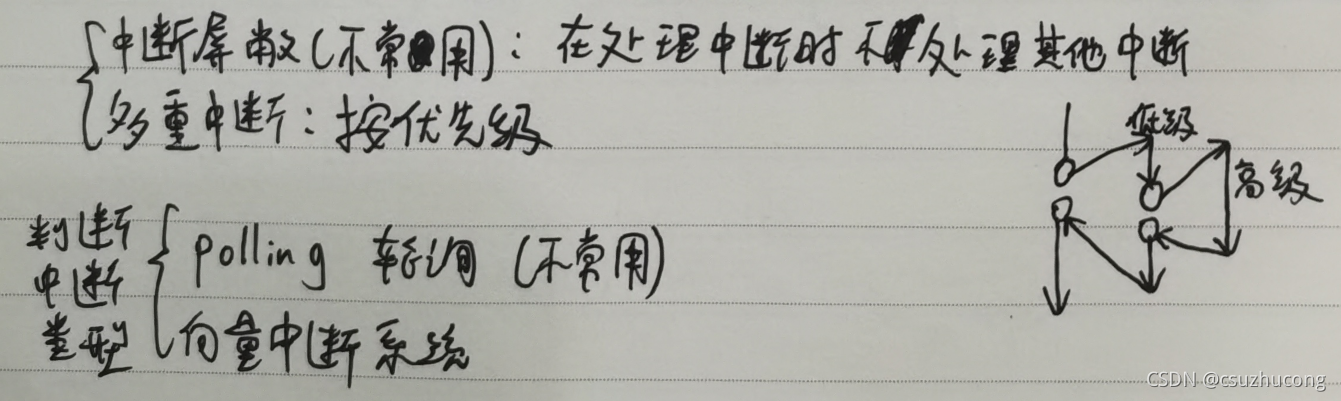 中断屏蔽(不常用)：在处理中断时不处理其他中断
多重中断：按优先级
低级
高级
判断中断类型
polling 轮询 (不常用)
向量中断系统
CSDN @csuzhucong